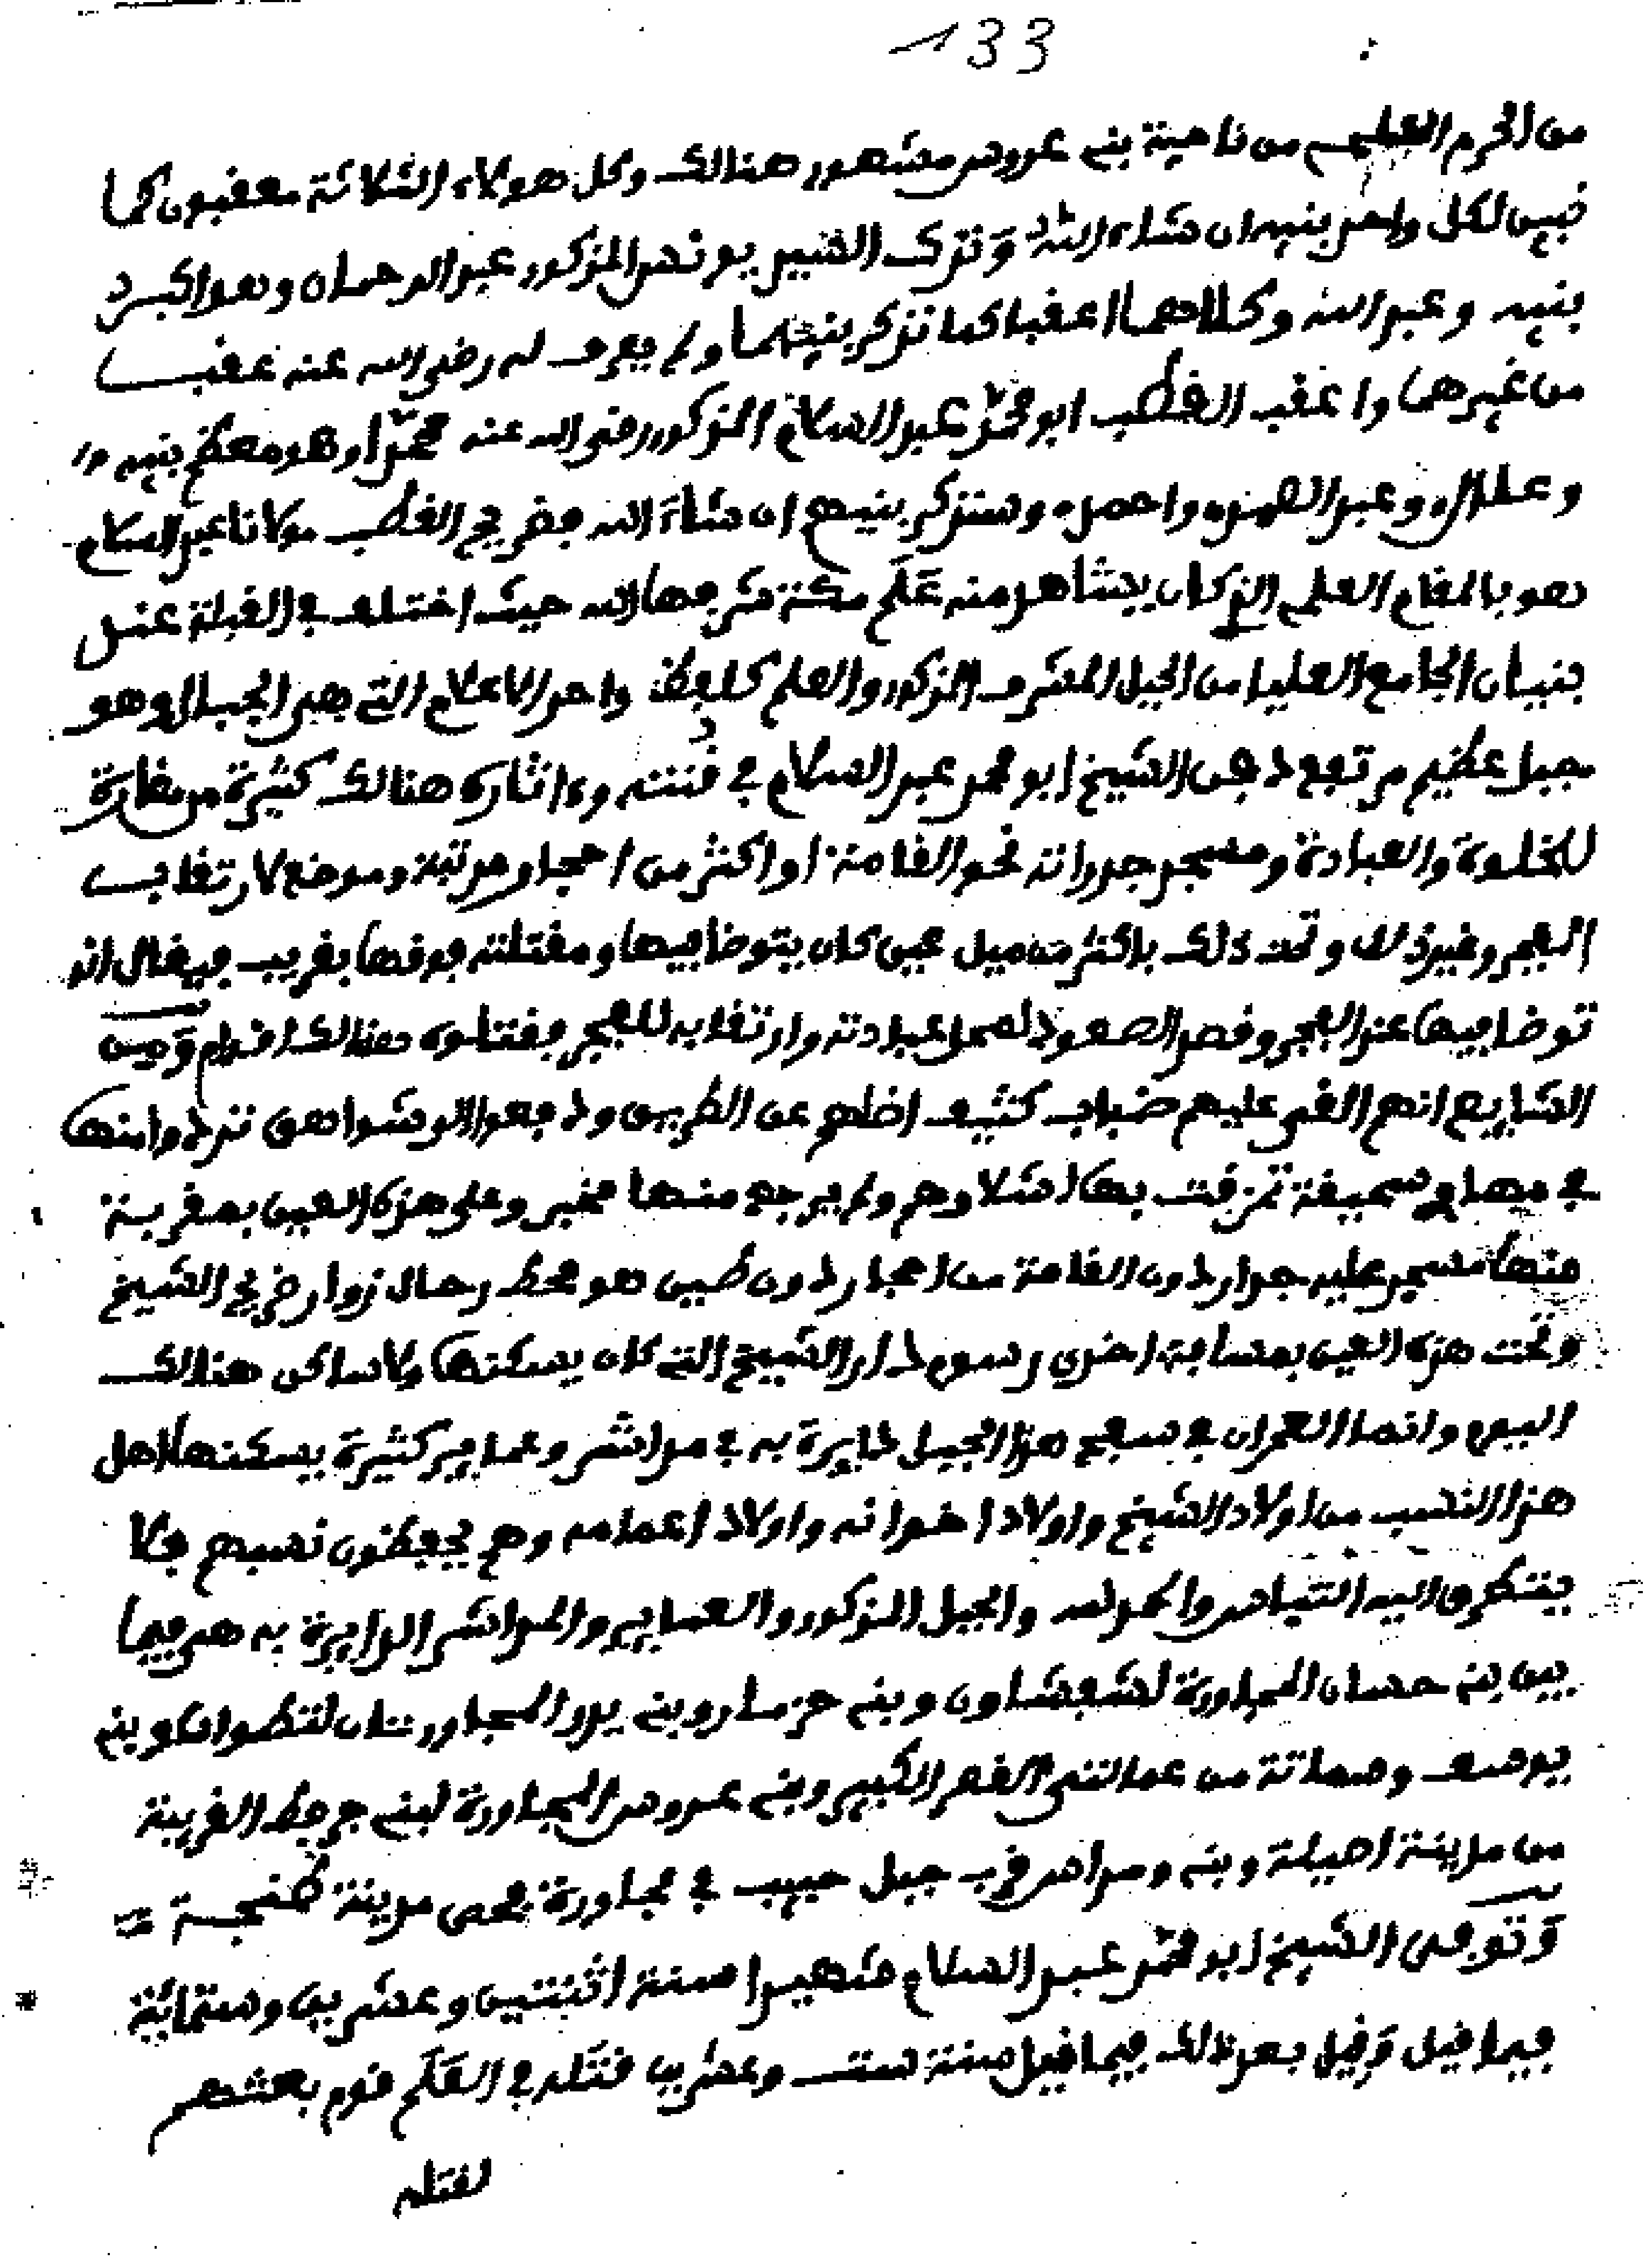 133
من الحرم العلمي من ناحية بني عروس مشهور هنالك وكل هولاء الثلاثة معقبون كما
نبين لكل واحد بنيه ان شاء الله وَترك السيد يونس المذكور عبد الرحمان وهو اكبر
بنيه وعبد الله وكلاهما اعقبا كما نذكر بنيهما ولم يعرف له رضي الله عنه عقب
من غيرهما واعقب القطب ابو محمد عبد السلام المذكور رضي الله عنه محمدا وهو معظم بنيه
وعلال وعبد الصمد واحمد وسنذكر بنيهم ان شاء الله وضريح القطب مولانا عبد السلام
هو بالمقام العلمي الذي كان يشاهد منه عَلَم مكة شرفها الله حيث اختلف في القبلة عند
بنيان الجامع العليا من الجبل المشرف المذكور والعلم كلفظ واحد الاعلام التي هي الجبال وهو
جبل عظيم مرتفع دفن الشيخ ابو محمد عبد السلام في قنته وءاثاره هنالك كثيرة من مغارة
للخلوة والعبادة ومسجد جدراته نحو القامة او اكثر من احجار مرتبة وموضع لارتقاب
الفجر وغير ذلك وتحت ذلك باكثر من ميل عين كان يتوضا فيها ومقتلته فوقها بقريب فيقال انه
توضا فيها عند الفجر وقصد الصعود لمحل عبادته وارتقابه للفجر فقتلوه هنالك اقوام وَمن
الشايع انهم القي عليهم ضباب كثيف اضلهم عن الطريق ودفعوا الى شواهق تردوا منها
في مهاو سحيقة تمزقت بها اشلاوهم ولم يرجع منها مخبر وعلى هذه العين بمقربة
منها مسجد عليه جدار دون القامة من احجار دون طين هو محط رحال زوار ضريح الشيخ
وتحت هذه العين بمسافة اخرى رسوم دار الشيخ التي كان يسكنها ولا ساكن هنالك
اليوم وانما العمران في سفح هذا الجبل دايرة به في مداشر وعماير كثيرة يسكنها اهل
هذا النسب من اولاد الشيخ واولاد اخوانه واولاد اعمامه وهم يحفظون نسبهم فلا
يتطرق اليه التباس والحمد لله والجبل المذكور والعماير والمداشر الدايرة به هي فيما
بين بني حسان المجاورة لشفشاون وبني حزمار وبني يدر المجاورتان لتطوان وبني
يوسف وسماتة من عمالتي القصر الكبير وبني عروس المجاورة لبني جرفط القريبة
من مدينة اصيلة وبني ومراس قرب جبل حبيب في مجاورة فحص مدينة طنجة
وَتوفى الشيخ ابو محمد عبد السلام شهيدا سنة اثنتين وعشرين وستمائة
فيما قيل وَقيل بعد ذلك فيما قيل سنة ست وعشرين قتله في العَلَم قوم بعثهم
لقتله